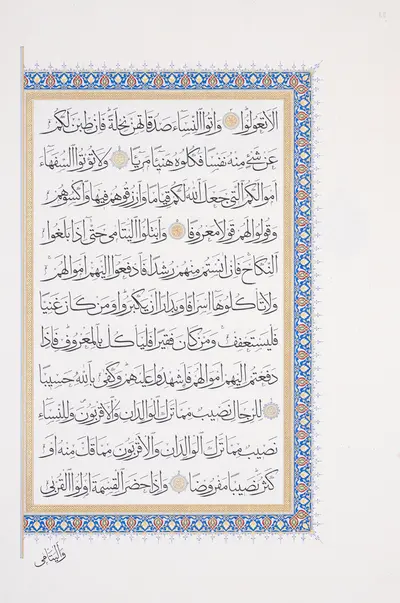 اَلّا تَعُولُوا وَآتُوا النِّسَاءَ صَدُقَاتِهِنَّ نِحْلَةً فَإِنْ طِبْنَ لَكُمْ
عَنْ شَيْءٍ مِنْهُ نَفْسًا فَكُلُوهُ هَنِيئًا مَرِيئًا وَلَا تُؤْتُوا السُّفَهَاءَ
أَمْوَالَكُمُ الَّتِي جَعَلَ اللَّهُ لَكُمْ قِيَامًا وَارْزُقُوهُمْ فِيهَا وَاكْسُوهُمْ
وَقُولُوا لَهُمْ قَوْلًا مَعْرُوفًا وَابْتَلُوا الْيَتَامَى حَتَّى إِذَا بَلَغُوا
النِّكَاحَ فَإِنْ آنَسْتُمْ مِنْهُمْ رُشْدًا فَادْفَعُوا إِلَيْهِمْ أَمْوَالَهُمْ
وَلَا تَأْكُلُوهَا إِسْرَافًا وَبِدَارًا أَنْ يَكْبَرُوا وَمَنْ كَانَ غَنِيًّا
فَلْيَسْتَعْفِفْ وَمَنْ كَانَ فَقِيرًا فَلْيَأْكُلْ بِالْمَعْرُوفِ فَإِذَا
دَفَعْتُمْ إِلَيْهِمْ أَمْوَالَهُمْ فَأَشْهِدُوا عَلَيْهِمْ وَكَفَى بِاللَّهِ حَسِيبًا
لِلرِّجَالِ نَصِيبٌ مِمَّا تَرَكَ الْوَالِدَانِ وَالْأَقْرَبُونَ وَلِلنِّسَاءِ
نَصِيبٌ مِمَّا تَرَكَ الْوَالِدَانِ وَالْأَقْرَبُونَ مِمَّا قَلَّ مِنْهُ أَوْ
كَثُرَ نَصِيبًا مَفْرُوضًا وَإِذَا حَضَرَ الْقِسْمَةَ أُولُوا الْقُرْبَى
وَالْيَتَامَى